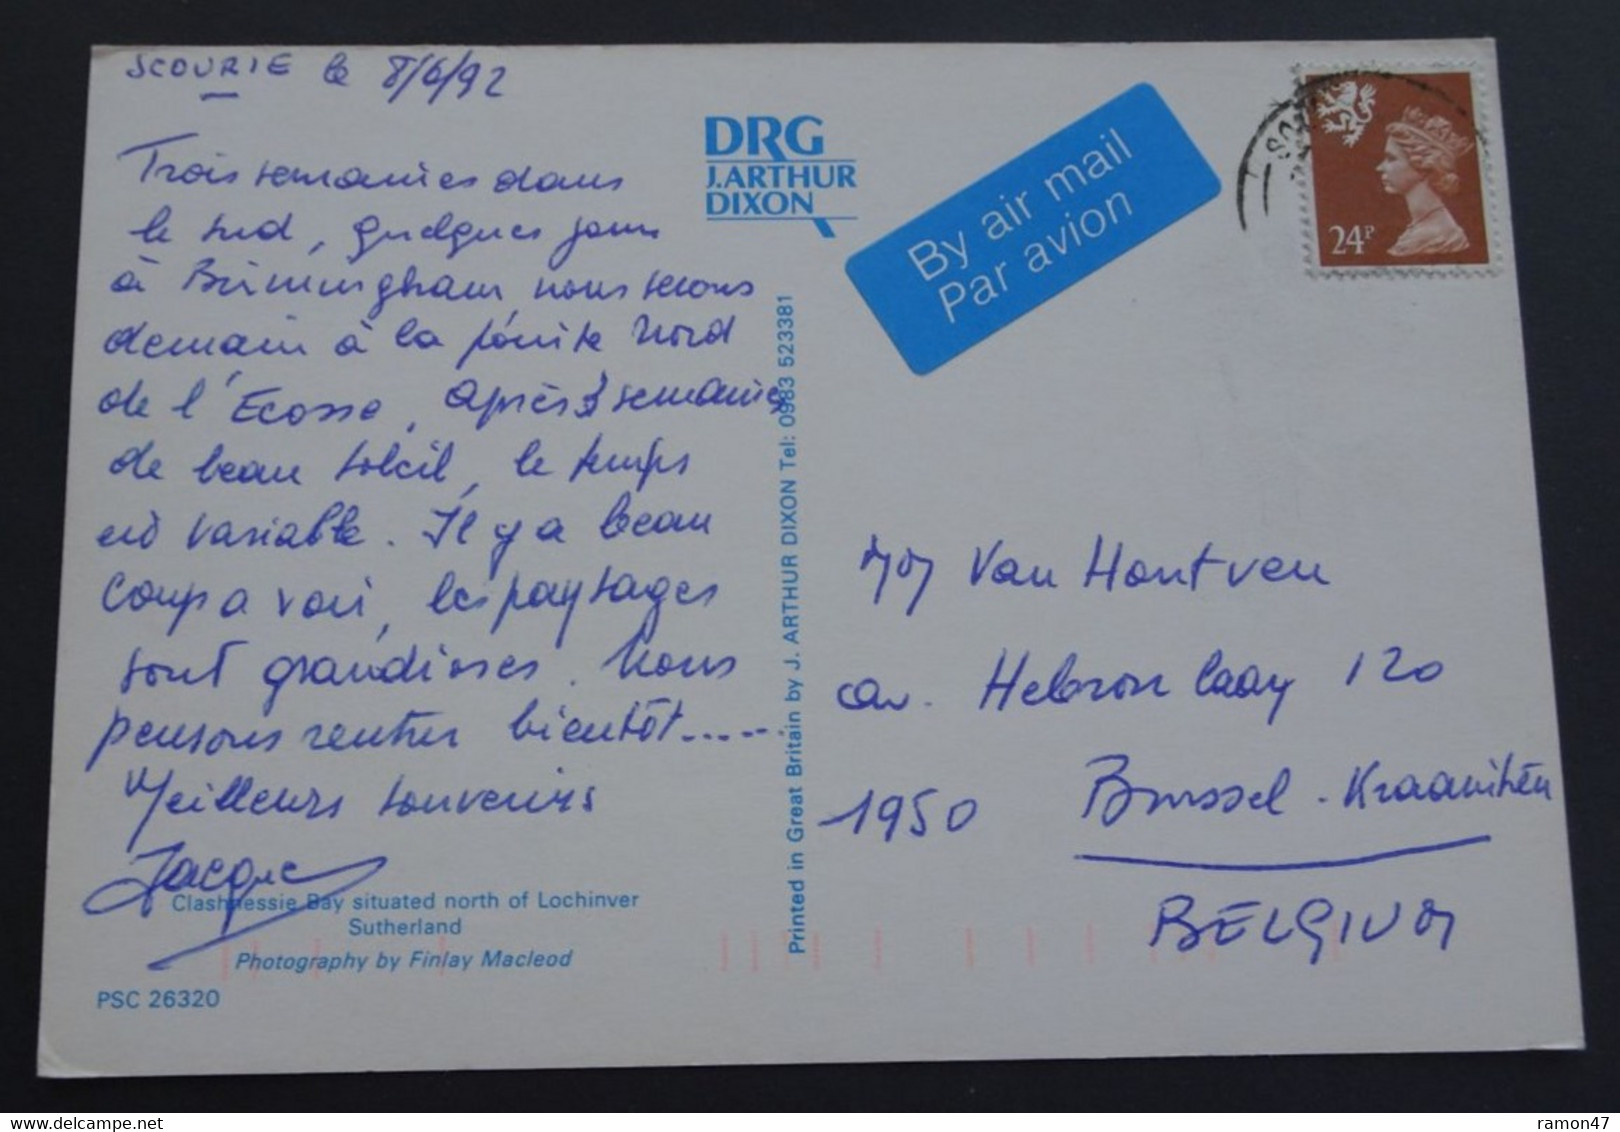 SCOURIE le 8/6/92
Trois semaines dans
le sud, quelques jours
à Birmingham nous serons
demain à la pointe Nord
de l'Ecosse, après 3 semaines
de beau soleil, le temps
est variable. Il y a beau
coup a voir, les paysages
sont grandioses. Nous
pensons rentrer bientôt......
Meilleurs souvenirs
Jacques
Clashnessie Bay situated north of Lochinver
Sutherland
Photography by Finlay Macleod
PSC 26320
DRG
J.ARTHUR
DIXON
Printed in Great Britain by J. ARTHUR DIXON Tel: 0983 523381
By air mail
Par avion
24P
Van Hontven
av. Hebron laan 120
1950 Brussel - Kraainhem
BELGIUM
delcampe.net
ramon47